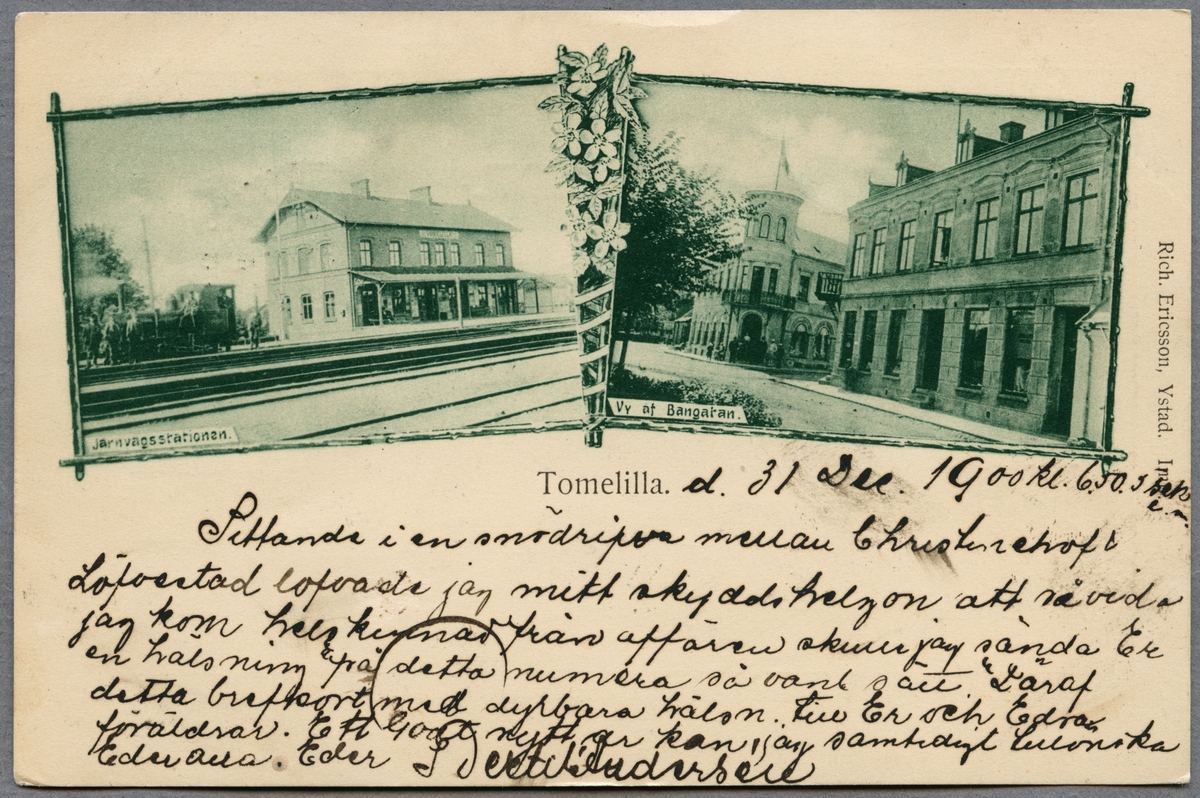 Järnvägsstationen.
Vy af Bangatan.
Rich. Ericsson, Ystad.
Tomelilla. d. 31 Dec. 1900 kl. 6.50.
Sittande i en snödrifva mellan Christinehof &
Löfvestad lofvade jag mitt skyddshelgon att så vida
jag kom helskinnad från affären skulle jag sända Er
en hälsning på detta numera så vanl. sätt. Däraf
detta brefkort med dyrbara hälsn. till Er och Edra
föräldrar. Ett godt nytt år kan jag samtidigt tillönska
Eder alla. Eder Bertil Andersen